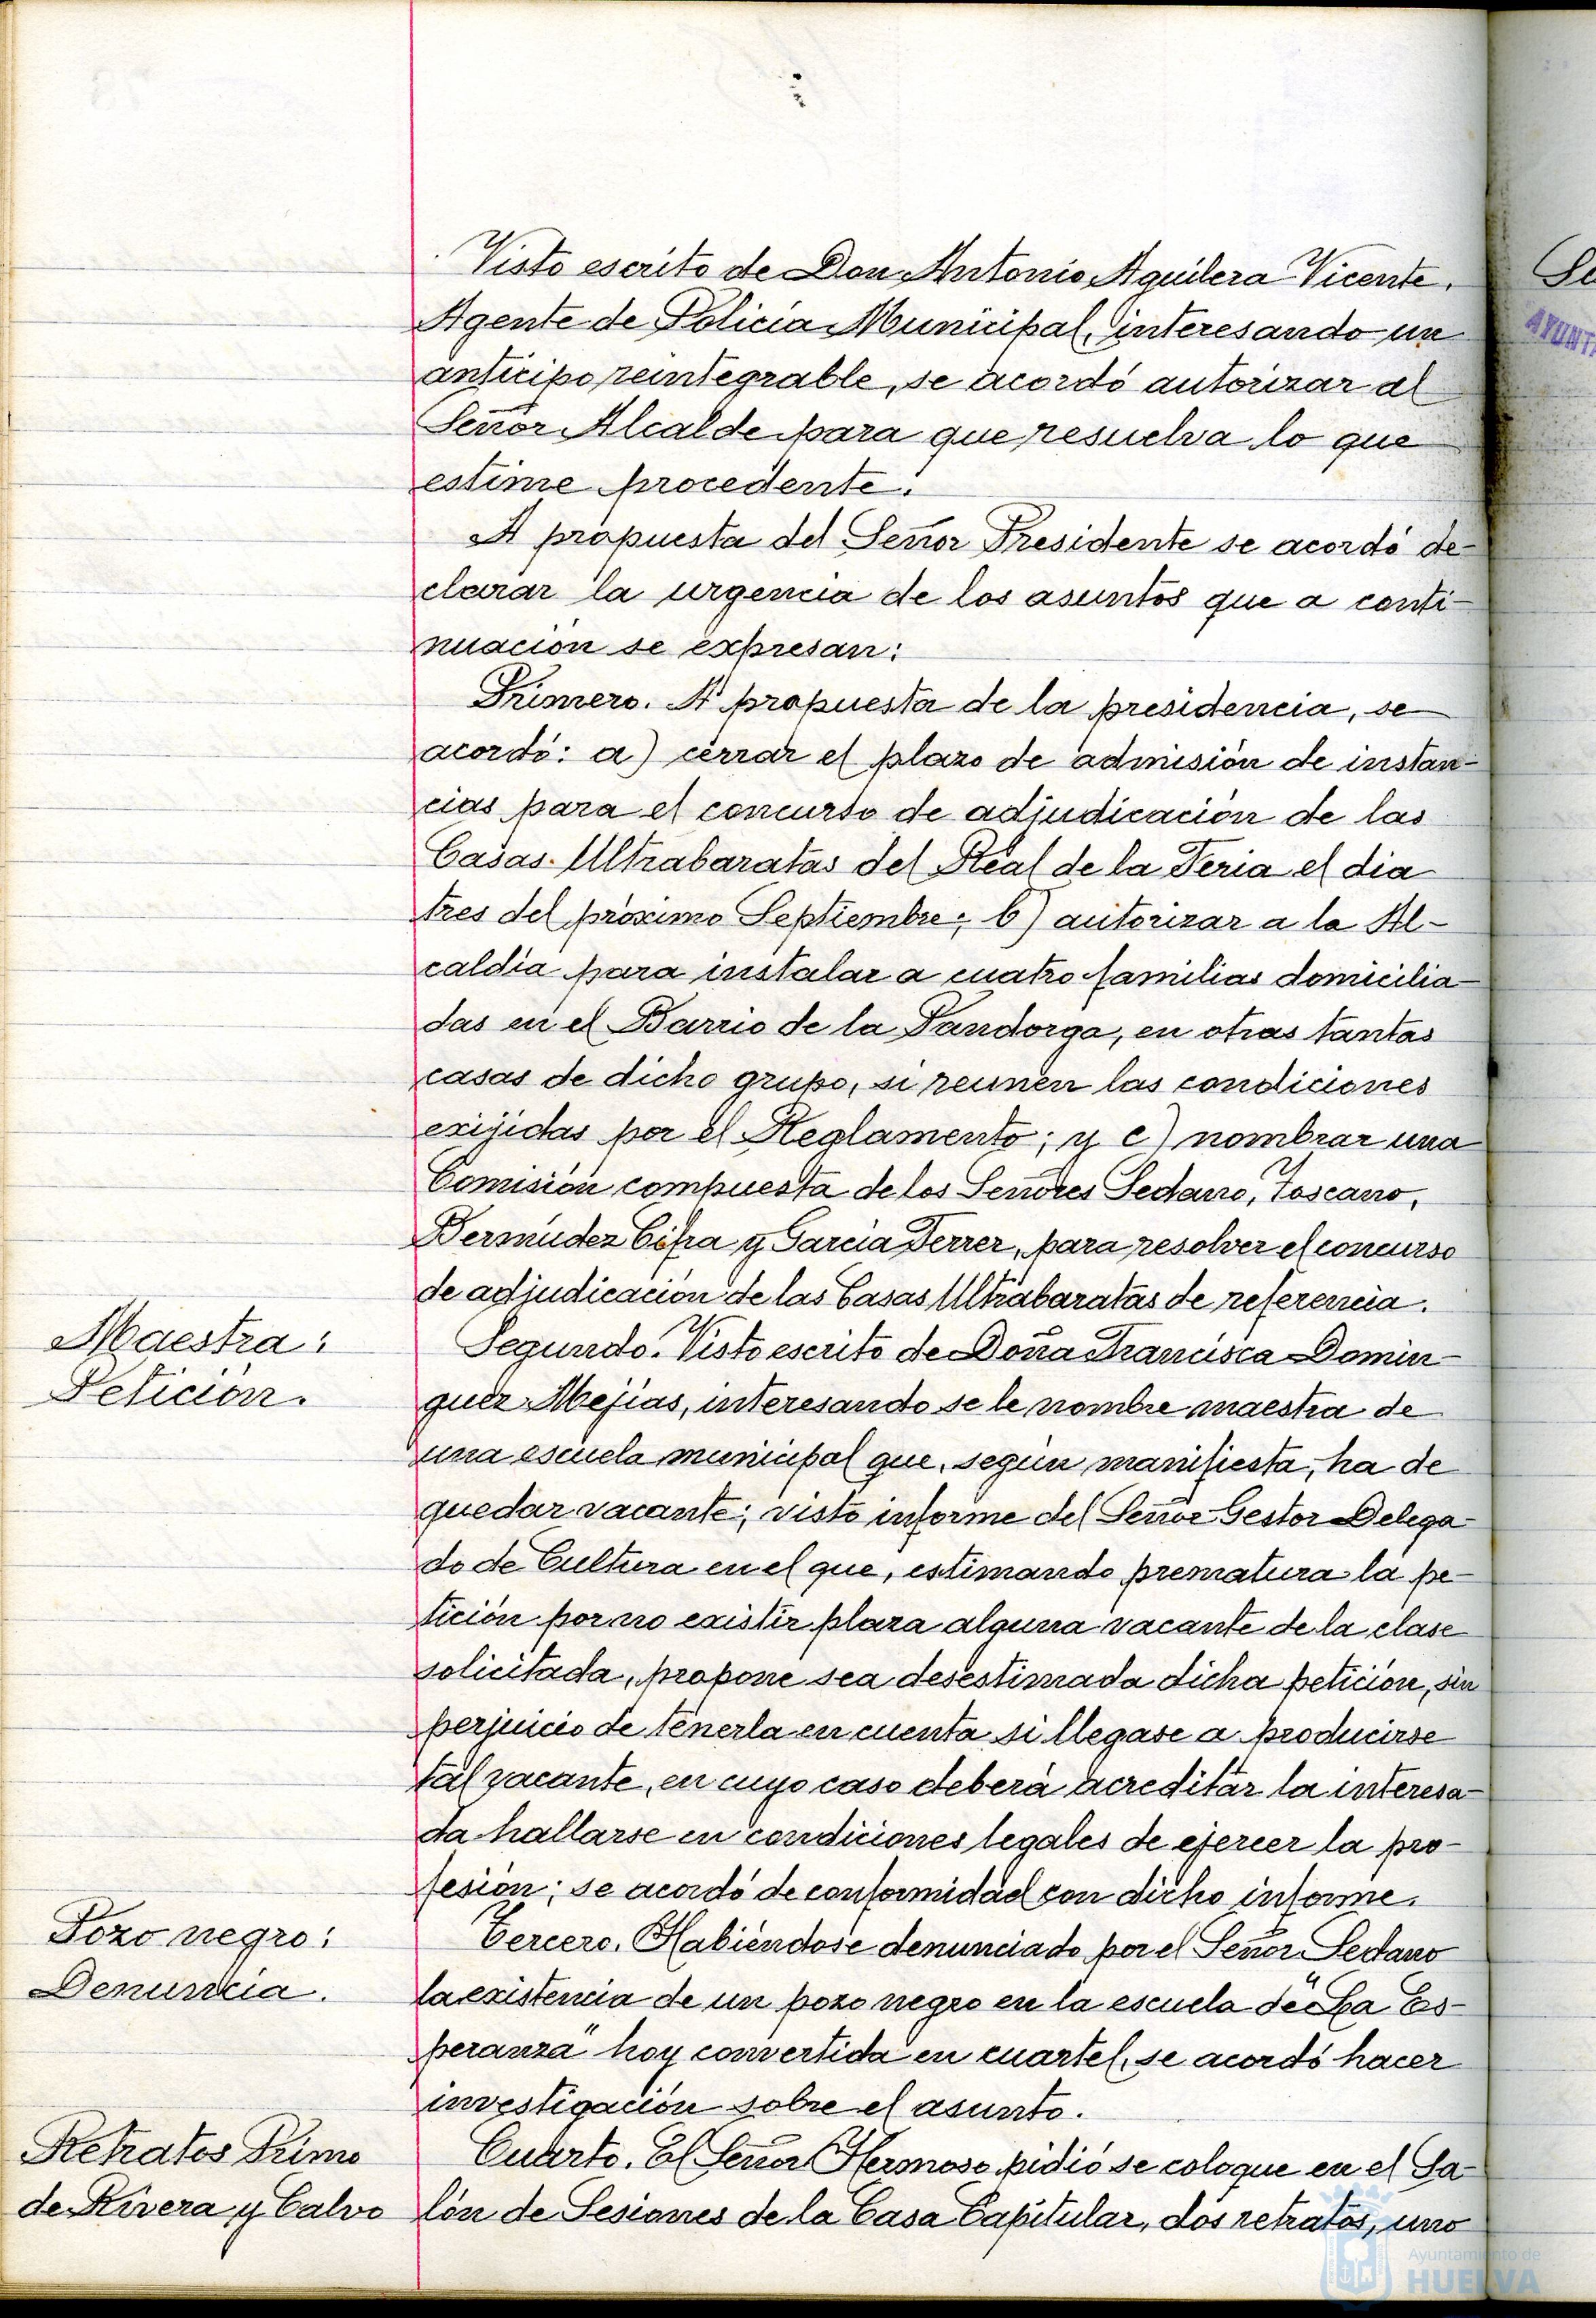 Visto escrito de Don Antonio Aguilera Vicente,
Agente de Policía Municipal, interesando un
anticipo reintegrable, se acordó autorizar al
Señor Alcalde para que resuelva lo que
estime procedente.
A propuesta del Señor Presidente se acordó de-
clarar la urgencia de los asuntos que a conti-
nuación se expresan:
Primero. A propuesta de la presidencia, se
acordó: a) cerrar el plazo de admisión de instan-
cias para el concurso de adjudicación de las
Casas Ultrabaratas del Real de la Feria el dia
tres del próximo Septiembre; b) autorizar a la Al-
caldía para instalar a cuatro familias domicilia-
das en el Barrio de la Pandorga, en otras tantas
casas de dicho grupo, si reunen las condiciones
exijidas por el Reglamento; y c) nombrar una
Comisión compuesta de los Señores Sedano, Toscano,
Bermúdez Cifra y García Ferrer, para resolver el concurso
de adjudicación de las Casas Ultrabaratas de referencia.
Maestra:
Petición.
Segundo. Visto escrito de Doña Francisca Domín-
guez Mejías, interesando se le nombre maestra de
una escuela municipal que, según manifiesta, ha de
quedar vacante; visto informe del Señor Gestor Delega-
do de Cultura en el que, estimando prematura la pe-
tición por no existir plaza alguna vacante de la clase
solicitada, propone sea desestimada dicha petición, sin
perjuicio de tenerla en cuenta si llegase a producirse
tal vacante, en cuyo caso deberá acreditar la interesa-
da hallarse en condiciones legales de ejercer la pro-
fesión; se acordó de conformidad con dicho informe.
Pozo negro:
Denuncia.
Tercero. Habiéndose denunciado por el Señor Sedano
la existencia de un pozo negro en la escuela de "La Es-
peranza" hoy convertida en cuartel, se acordó hacer
investigación sobre el asunto.
Retratos Primo
de Rivera y Calvo
Cuarto. El Señor Hermoso pidió se coloque en el Sa-
lón de Sesiones de la Casa Capitular, dos retratos, uno
Ayuntamiento de
HUELVA